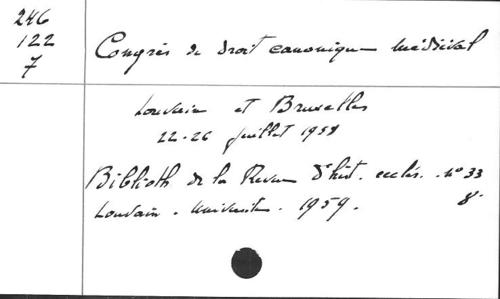 246
122
7
Congrès de droit canonique médiéval
Louvain et Bruxelles
22-26 juillet 1958
Biblioth. de la Revue d'hist. ecclés. n° 33
Louvain. Université. 1959. 8°